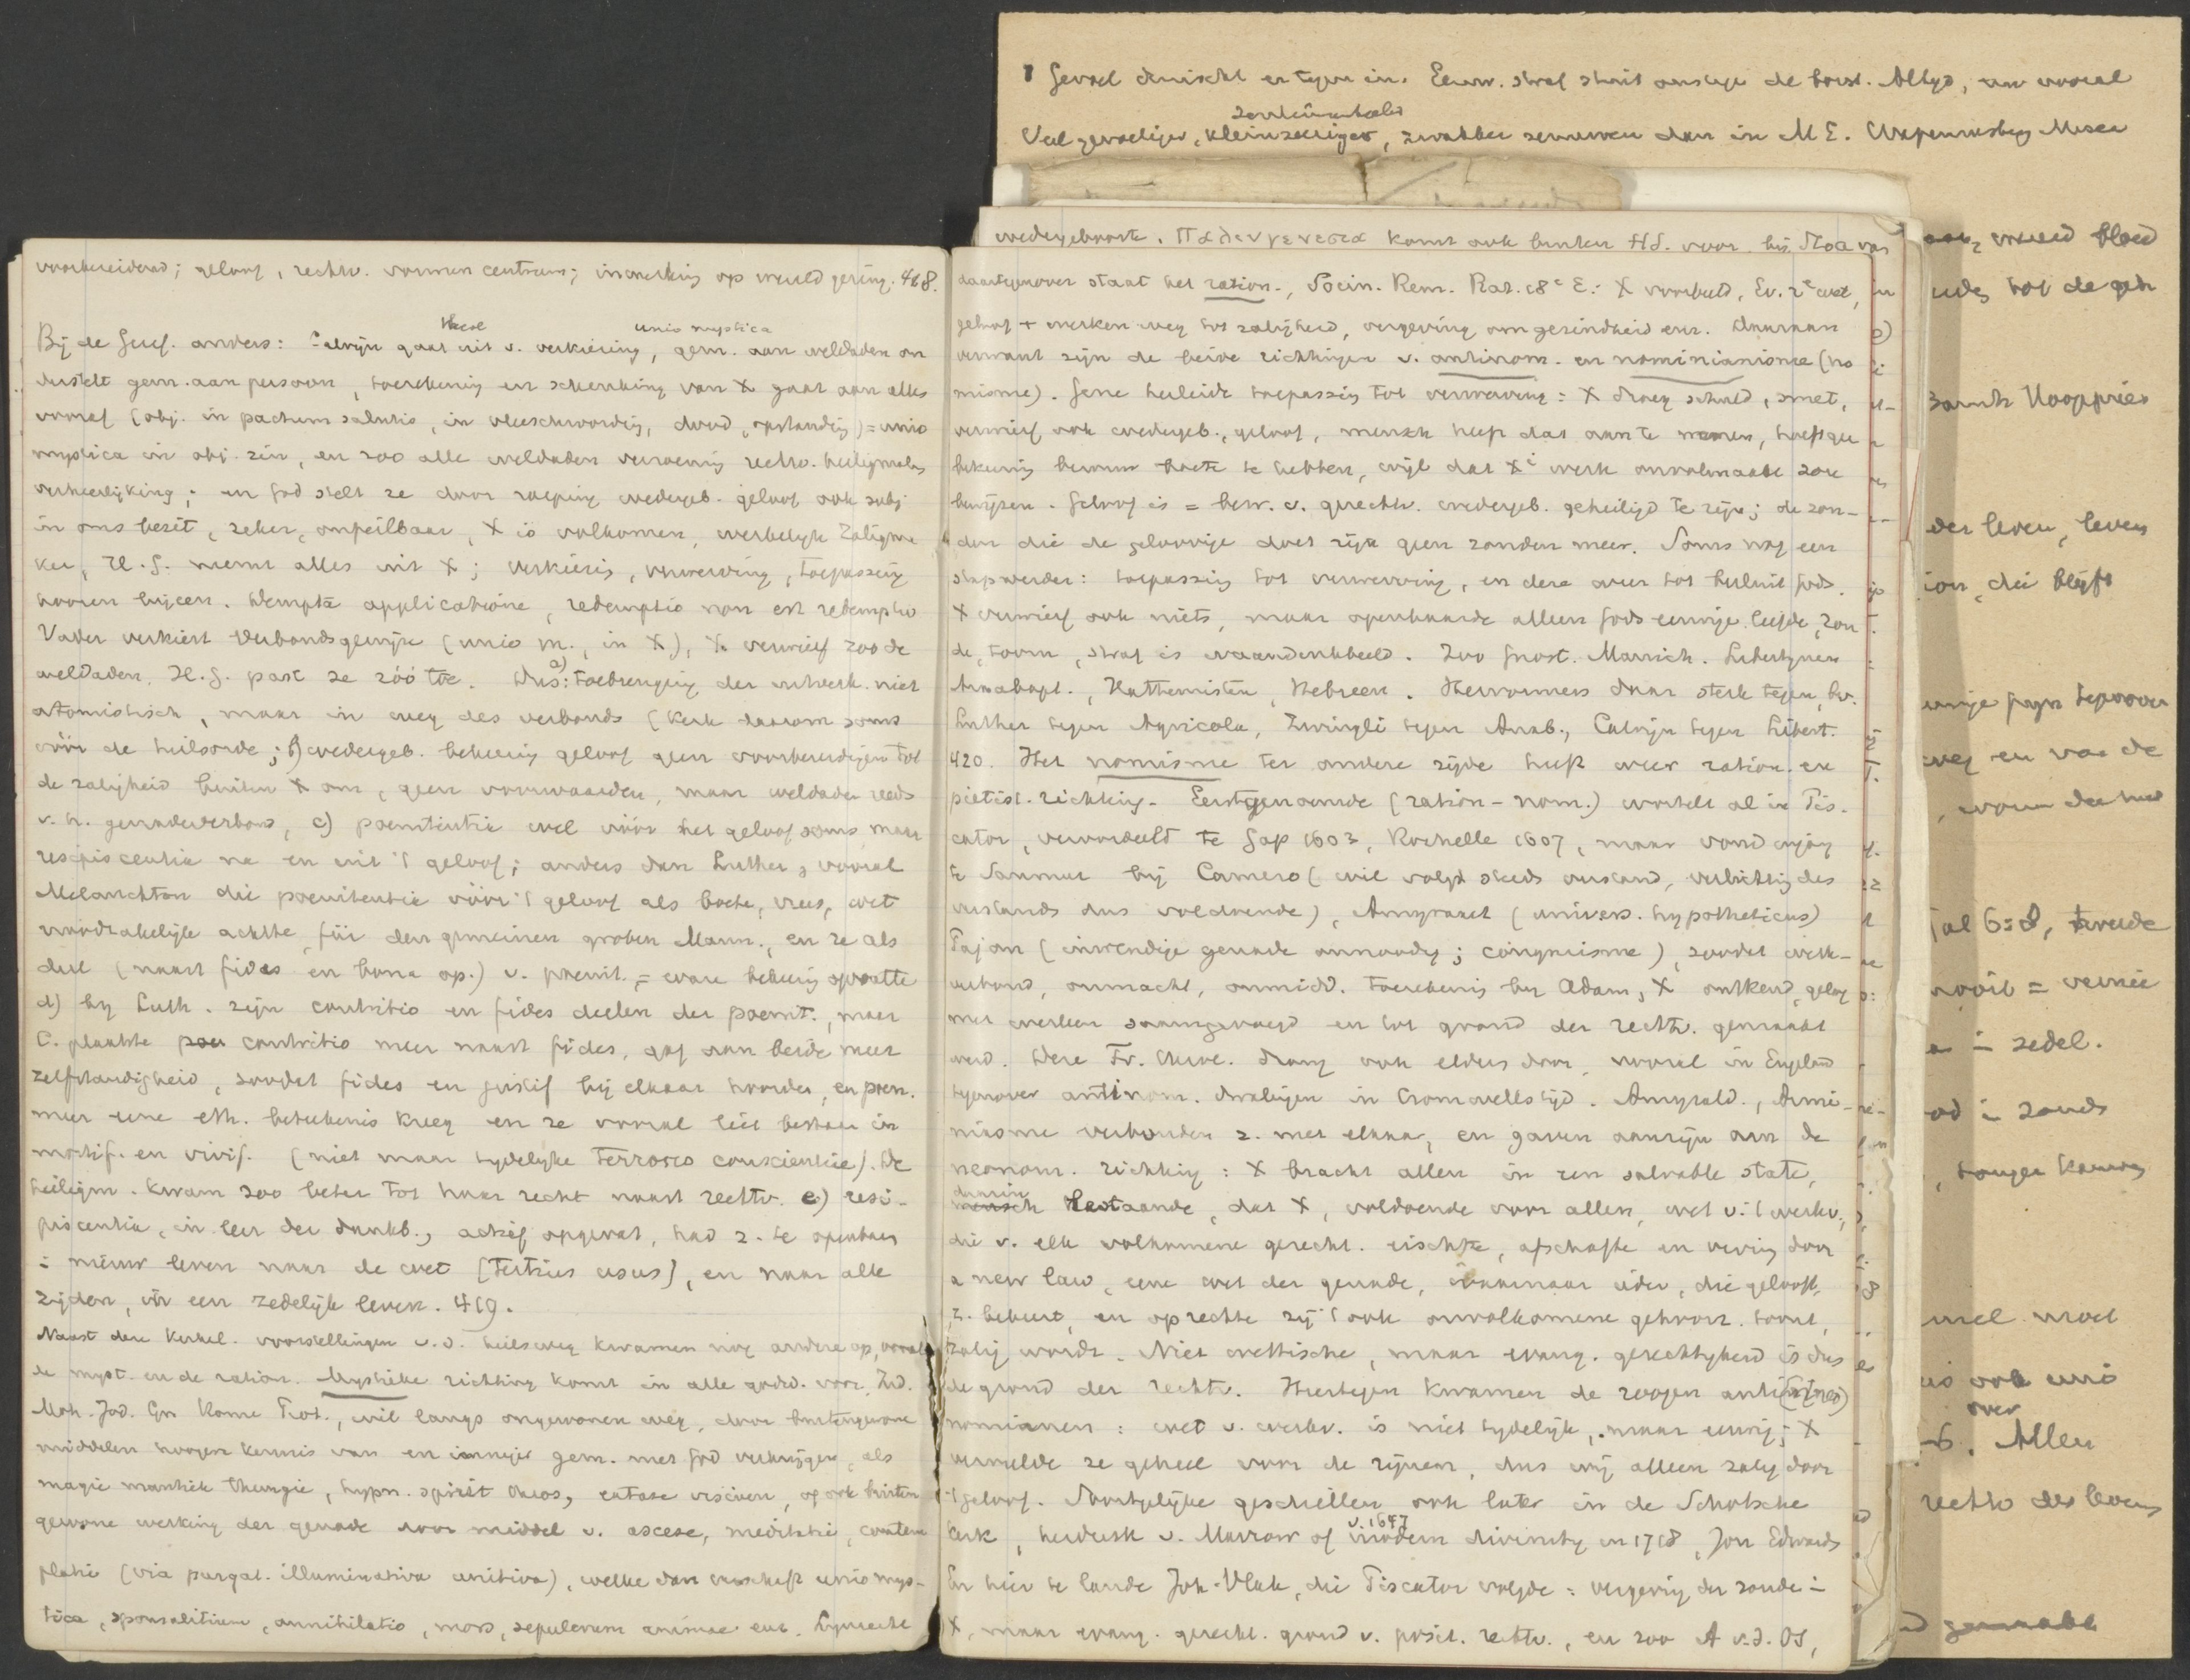 voorbereidend; geloof, rechtv. vormen centrum; inwerking op wereld gering. 418.
these
unio mystica
Bij de Geref. anders: Calvijn gaat uit v. verkiezing, gem. aan weldaden on
derstelt gem. aan persoon, toerekening en schenking van X gaat aan alles
vooraf (obj. in pactum salutis, in vleeschwording, dood, opstanding) = unio
mystica in obj. zin, en zoo alle weldaden verzoening rechtv. heiligmaking
verheerlijking; en God stelt ze door roeping wedergeb. geloof ook subj.
in ons bezit, zeker, onfeilbaar, X is volkomen, werkelijk Zaligma
ker, H.G. neemt alles uit X; verkiezing, verwerving, toepassing
hooren bijeen. Dempta applicatione, redemptio non est redemptio
Vader verkiest verbondsgewijze (unio m., in X), X verwierf zoo de
weldaden, H.G. past ze zóó toe. Dus: a) toebrenging der uitverk. niet
atomistisch, maar in weg des verbonds (Kerk daarom soms
vóór de heilsorde; b) wedergeb. bekeering geloof geen voorbereidingen tot
de zaligheid buiten X om, geen voorwaarden, maar weldaden reeds
v. h. genadeverbond, c) poenitentie wel vóór het geloof soms, maar
resipiscentia na en uit 't geloof; anders dan Luther, vooral
Melanchton die poenitentie vóór 't geloof als boete, vrees, wet
noodzakelijk achtte, für den gemeinen groben Mann., en ze als
deel (naast fides en bona op.) v. poenit. = ware bekeering opvatte
d) bij Luth. zijn contritio en fides deelen der poenit., maar
C. plaatste contritio meer naast fides, gaf aan beide meer
zelfstandigheid, zoodat fides en justif bij elkaar hoorden, en poen.
meer eene eth. beteekenis kreeg en ze vooral liet bestaan in
mortif. en vivif. (niet maar tijdelijke terrores conscientiae). De
heiligm. kwam zoo beter tot haar recht naast rechtv. e) resi-
piscentia, in leer der dankb., actief opgevat, had z. te openbaren
in nieuw leven naar de wet (tertius usus), en naar alle
zijden, in een zedelijk leven. 419.
Naast deze kerkel. voorstellingen v.d. heilsweg kwamen nog andere op, vooral
de myst. en de ration. Mystieke richting komt in alle godsd. voor. Ind.
Moh. Jod. Gr. Rome Prot., wil langs ongewonen weg, door buitengewone
middelen hoogere kennis van en inniger gem. met God verkrijgen, als
magie mantiek theurgie, hypn. spirit theos, extase visioen, of ook buiten
gewone werking der genade door middel v. ascese, meditatie, contem
platie (via purgat. illuminativa unitiva), welke dan verschaft unio mys-
tica, sponsalitium, annihilatio, mors, sepulcrum animae enz. Lijnrecht
1 Gevoel er tegen in. Eeuw. straf stuit de borst. Altijd, nu vooral
sentimenteeler
Veel gevoeliger, kleinzeeriger, zwakker zenuwen dan in M.E.
wedergeboorte. Παλινγενεσια komt ook buiten H.S. voor. bij Stoa van
daartegenover staat het ration., Socin. Rem. Rat. 18e E.: X voorbeeld, Ev. 2e wet,
geloof + werken weg tot zaligheid, vergeving om gezindheid enz. Daaraan
verwant zijn de beide richtingen v. antinom. en nominianisme (no
misme). Gene herleide toepassing tot verwerving: X droeg schuld, smet,
verwierf ook wedergeb., geloof, mensch heeft dat aan te nemen, hoeft geen
bekeering berouw boete te hebben, wijl dat Xi werk onvolmaakt zou
bewijzen. Geloof is = bew. v. gerechtv. wedergeb. geheiligd te zijn; de zon-
den die de geloovige doet zijn geen zonden meer. Soms nog een
stap verder: toepassing tot verwerving, en deze weer tot besluit Gods.
X verwierf ook niets, maar openbaarde alleen Gods eeuwige liefde, zon
de, toorn, straf is waandenkbeeld. Zoo Gnost. Manich. Libertijnen
Anabapt., Hattemisten, Hebreen. Hervormers daar sterk tegen, bv.
Luther tegen Agricola, Zwingli tegen Anab., Calvijn tegen Libert.
420. Het nomisme ter andere zijde heeft weer ration. en
pietist. richting. Eerstgenoemde (ration-nom.) wortelt al in Pis-
cator, veroordeeld te Gap 1603, Rochelle 1607, maar vond ingang
te Saumur bij Camero (wil volgt steeds verstand, verlichting des
verstands dus voldoende), Amyraut (univers. hypotheticus)
Pajon (inwendige genade onnoodig; congruisme), zoodat werk-
verbond, onmacht, onmidd. toerekening bij Adam, X ontkend, geloof
met werken saamgevoegd en tot grond der rechtv. gemaakt
werd. Deze Fr. theol. drong ook elders door, vooral in Engeland
tegenover antinom. dwalingen in Cromwells tijd. Amyrald., Armi-
nianisme verbonden z. met elkaar, en gaven aanzijn aan de
neonom. richting: X bracht allen in een salvable state,
daarin
bestaande, dat X, voldoende voor allen, wet v. 't werkv.,
die v. elk volkomene gerecht. eischte, afschafte en verving door
a new law, eene wet der genade, waarnaar ieder, die gelooft,
z. bekeert, en oprechte zij 't ook onvolkomene gehoorz. toont,
zalig wordt. Niet wettische, maar evang. gerechtigheid is dus
de grond der rechtv. Hiertegen kwamen de zoogen anti(neo)
nomianen: wet v. werkv. is niet tijdelijk, maar eeuwig; X
vervulde ze geheel voor de zijnen, dus wij alleen zalig door
't geloof. Soortgelijke geschillen ook later in de Schotsche
v. 1647
kerk, herdruk v. Marrow of modern divinity in 1718, Jon Edwards
En hier te lande Joh. Vlak, die Piscator volgde: vergeving der zonde in
X, maar evang. gerecht. grond v. posit. rechtv., en zoo A v.d. OS,
wreed bloed
der leven, leven
ion, die blijft
weg en van de
tal 6=8, tweede
nooit =
zedel.
Allen
over
rechtv des levens